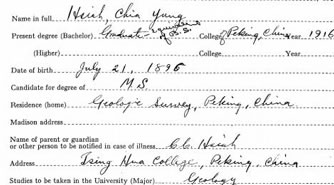 Name in full, Hsieh, Chia Yung
Present degree (Bachelor) Graduate College, Peking, China Year, 1916
(Higher) College, Year,
Date of birth July 21, 1896
Candidate for degree of M.S.
Residence (home) Geologic Survey, Peking, China
Madison address
Name of parent or guardian
or other person to be notified in case of illness, C.C. Hsieh
Address Tsing Hua College, Peking, China
Studies to be taken in the University (Major) Geology